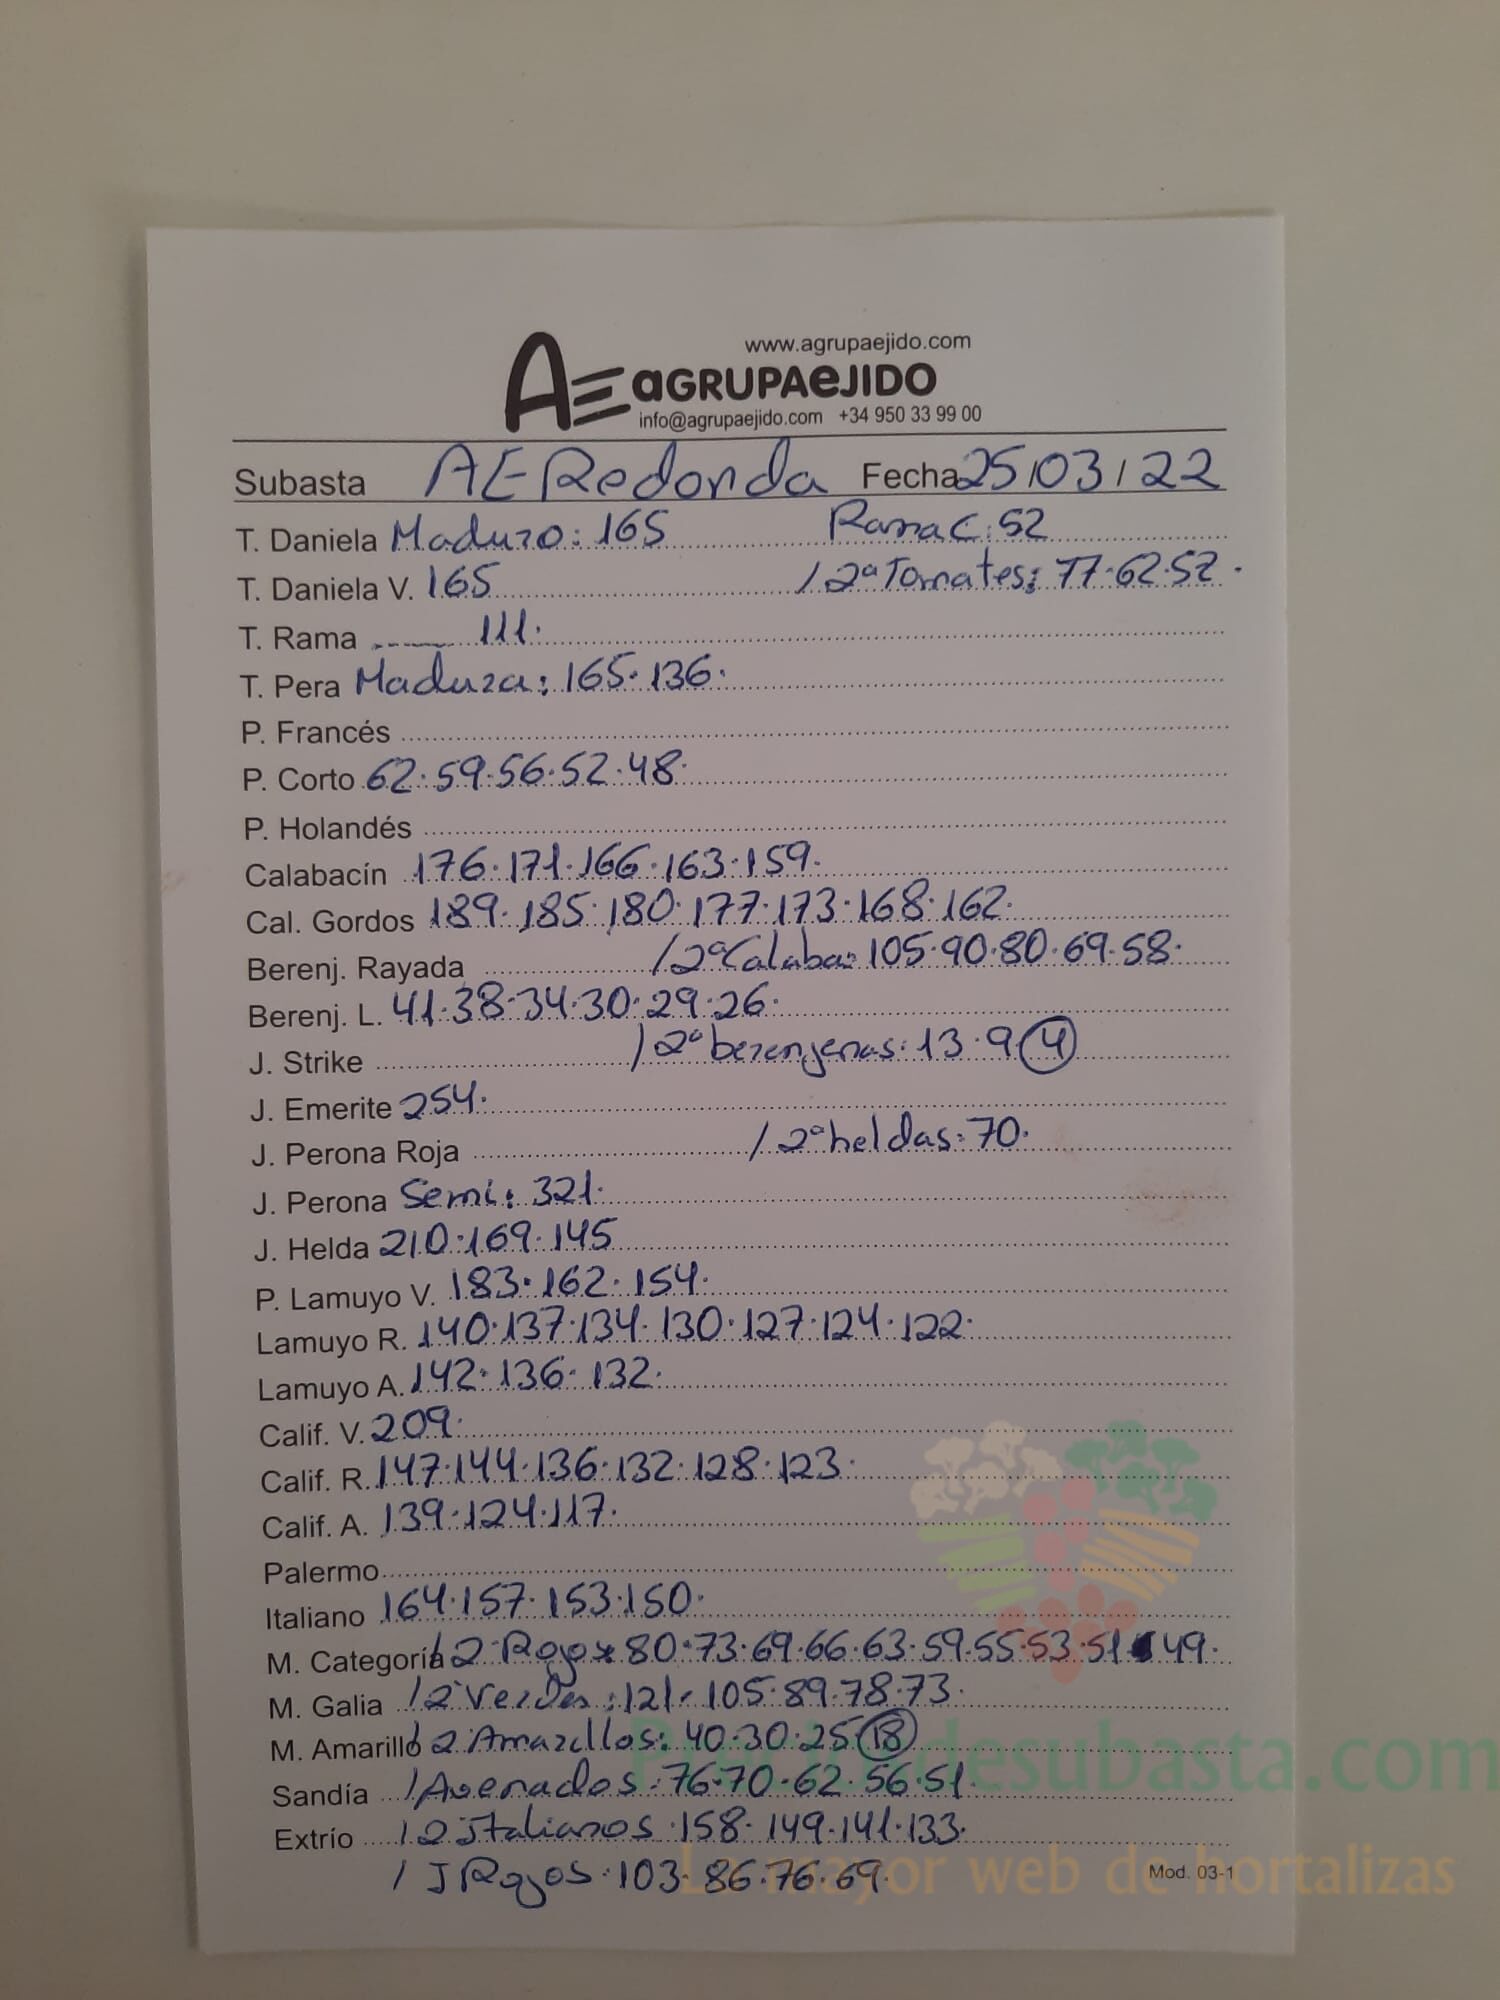 www.agrupaejido.com
AE aGRUPAeJIDO
info@agrupaejido.com +34 950 33 99 00
Subasta AE Redonda Fecha 25/03/22
T. Daniela Maduro: 165 Rama C: 52
T. Daniela V. 165 / 2ª Tomates: 77·62·52·
T. Rama ---- 111·
T. Pera Madura: 165·136·
P. Francés
P. Corto 62·59·56·52·48·
P. Holandés
Calabacín 176·171·166·163·159·
Cal. Gordos 189·185·180·177·173·168·162·
Berenj. Rayada / 2ª Calaba: 105·90·80·69·58·
Berenj. L. 41·38·34·30·29·26·
J. Strike / 2ª berenjenas: 13·9 4
J. Emerite 254·
J. Perona Roja / 2ª heldas: 70·
J. Perona Semi: 321·
J. Helda 210·169·145
P. Lamuyo V. 183·162·154·
Lamuyo R. 140·137·134·130·127·124·122·
Lamuyo A. 142·136·132·
Calif. V. 209·
Calif. R. 147·144·136·132·128·123·
Calif. A. 139·124·117·
Palermo
Italiano 164·157·153·150·
M. Categoría / 2 Rojos 80·73·69·66·63·59·55·53·51 49·
M. Galia / 2 Verdes: 121·105·89·78·73·
M. Amarillo / 2 Amarillos: 40·30·25 18
Sandía / Asenados: 76·70·62·56·51·
Extrío / 2 Italianos·158·149·141·133·
/ J Rojos·103·86·76·69·
Mod. 03-1
Preciosdesubasta.com
La mayor web de hortalizas